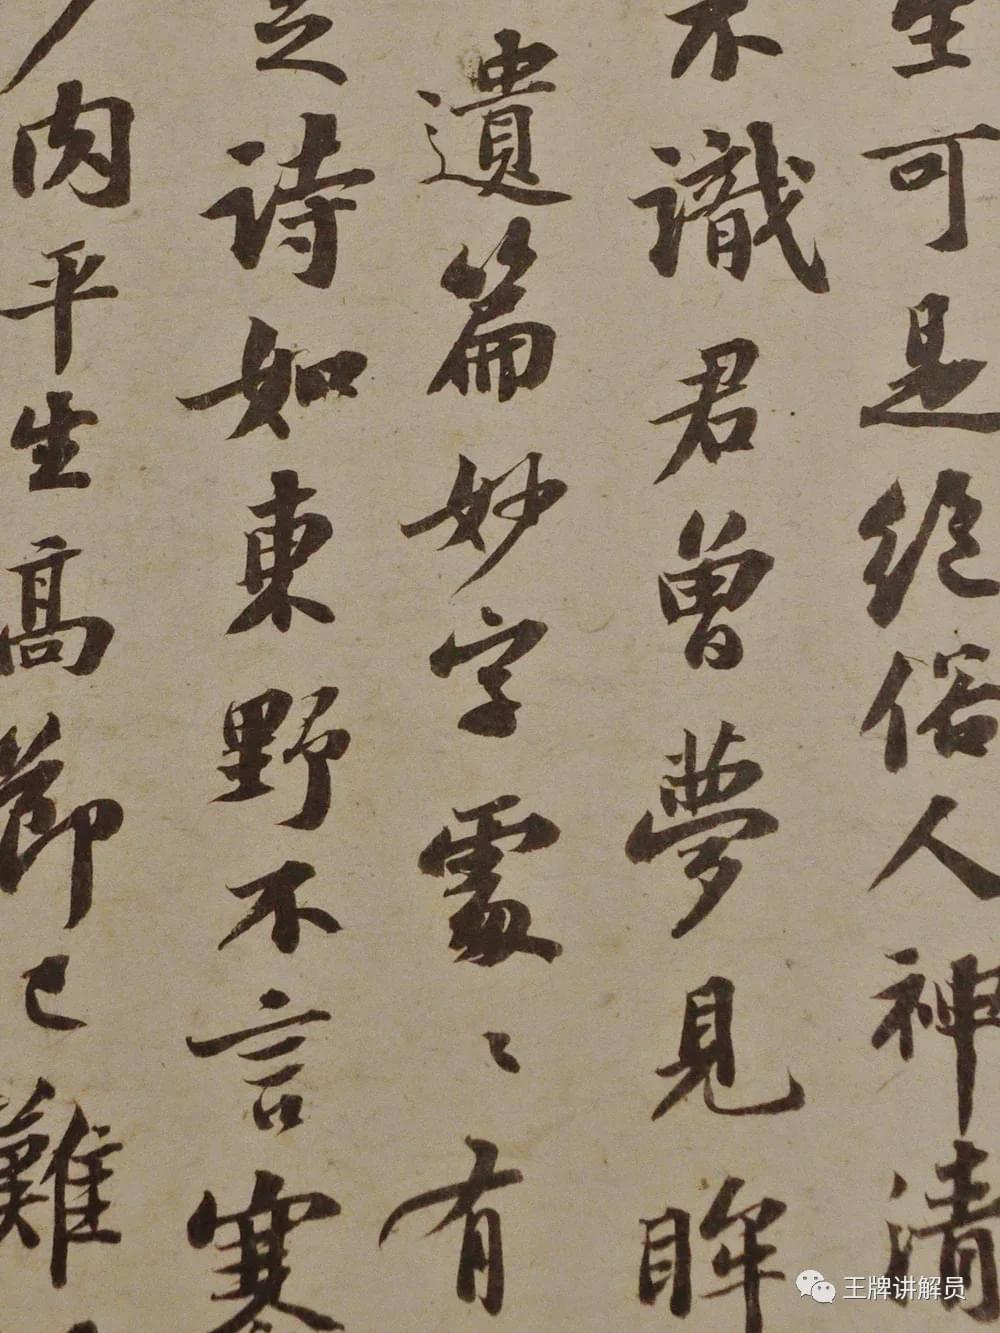 生可是絕俗人神清
不識君曾夢見眸
遺篇妙字處〻有
詩如東野不言寒
肉平生高節已難
王牌讲解员